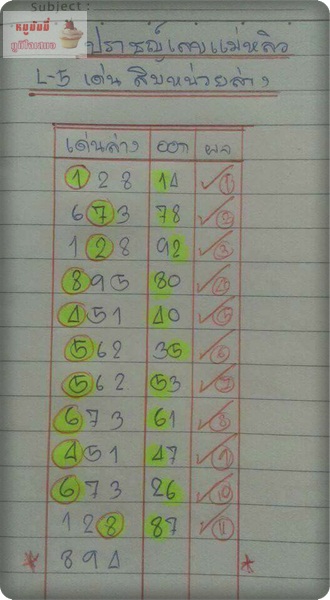 Subject :
หมูยิ้ม
ปราชญ์เลขแม่หลิว
L-5 เด่น สิบหน่วยล่าง
เด่นล่าง ออก ผล
1 2 8 14 ✓ 1
6 7 3 78 ✓ 2
1 2 8 92 ✓ 3
8 9 5 80 ✓ 4
4 5 1 40 ✓ 5
5 6 2 35 ✓ 6
5 6 2 53 ✓ 7
6 7 3 61 ✓ 8
4 5 1 47 ✓ 9
6 7 3 26 ✓ 10
1 2 8 87 ✓ 11
* 8 9 4 *